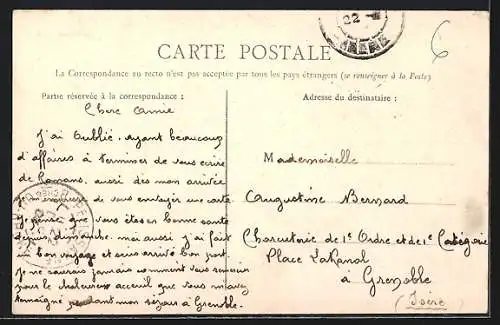 22
6
CARTE POSTALE
La Correspondance au recto n'est pas acceptée par tous les pays étrangers (se renseigner à la Poste)
Partie réservée à la correspondance :
Chere Amie
J'ai oublié, ayant beaucoup
d'affaires à terminer de vous écrire
de Romans, aussi des mon arrivée
je m'empresse de vous envoyer une carte
Je pense que vous êtes en bonne santé
depuis dimanche. moi aussi j'ai fait
un bon voyage et suis arrivé bon port.
Je ne saurais jamais comment vous remercier
pour le chaleureux acceuil que vous m'avez
temoigné pendant mon séjour à Grenoble.
Adresse du destinataire :
Mademoiselle
Augustine Bernard
Charcuterie de 1e Ordre et de 1e Catégorie
Place Lakanal
à Grenoble
(Isère)